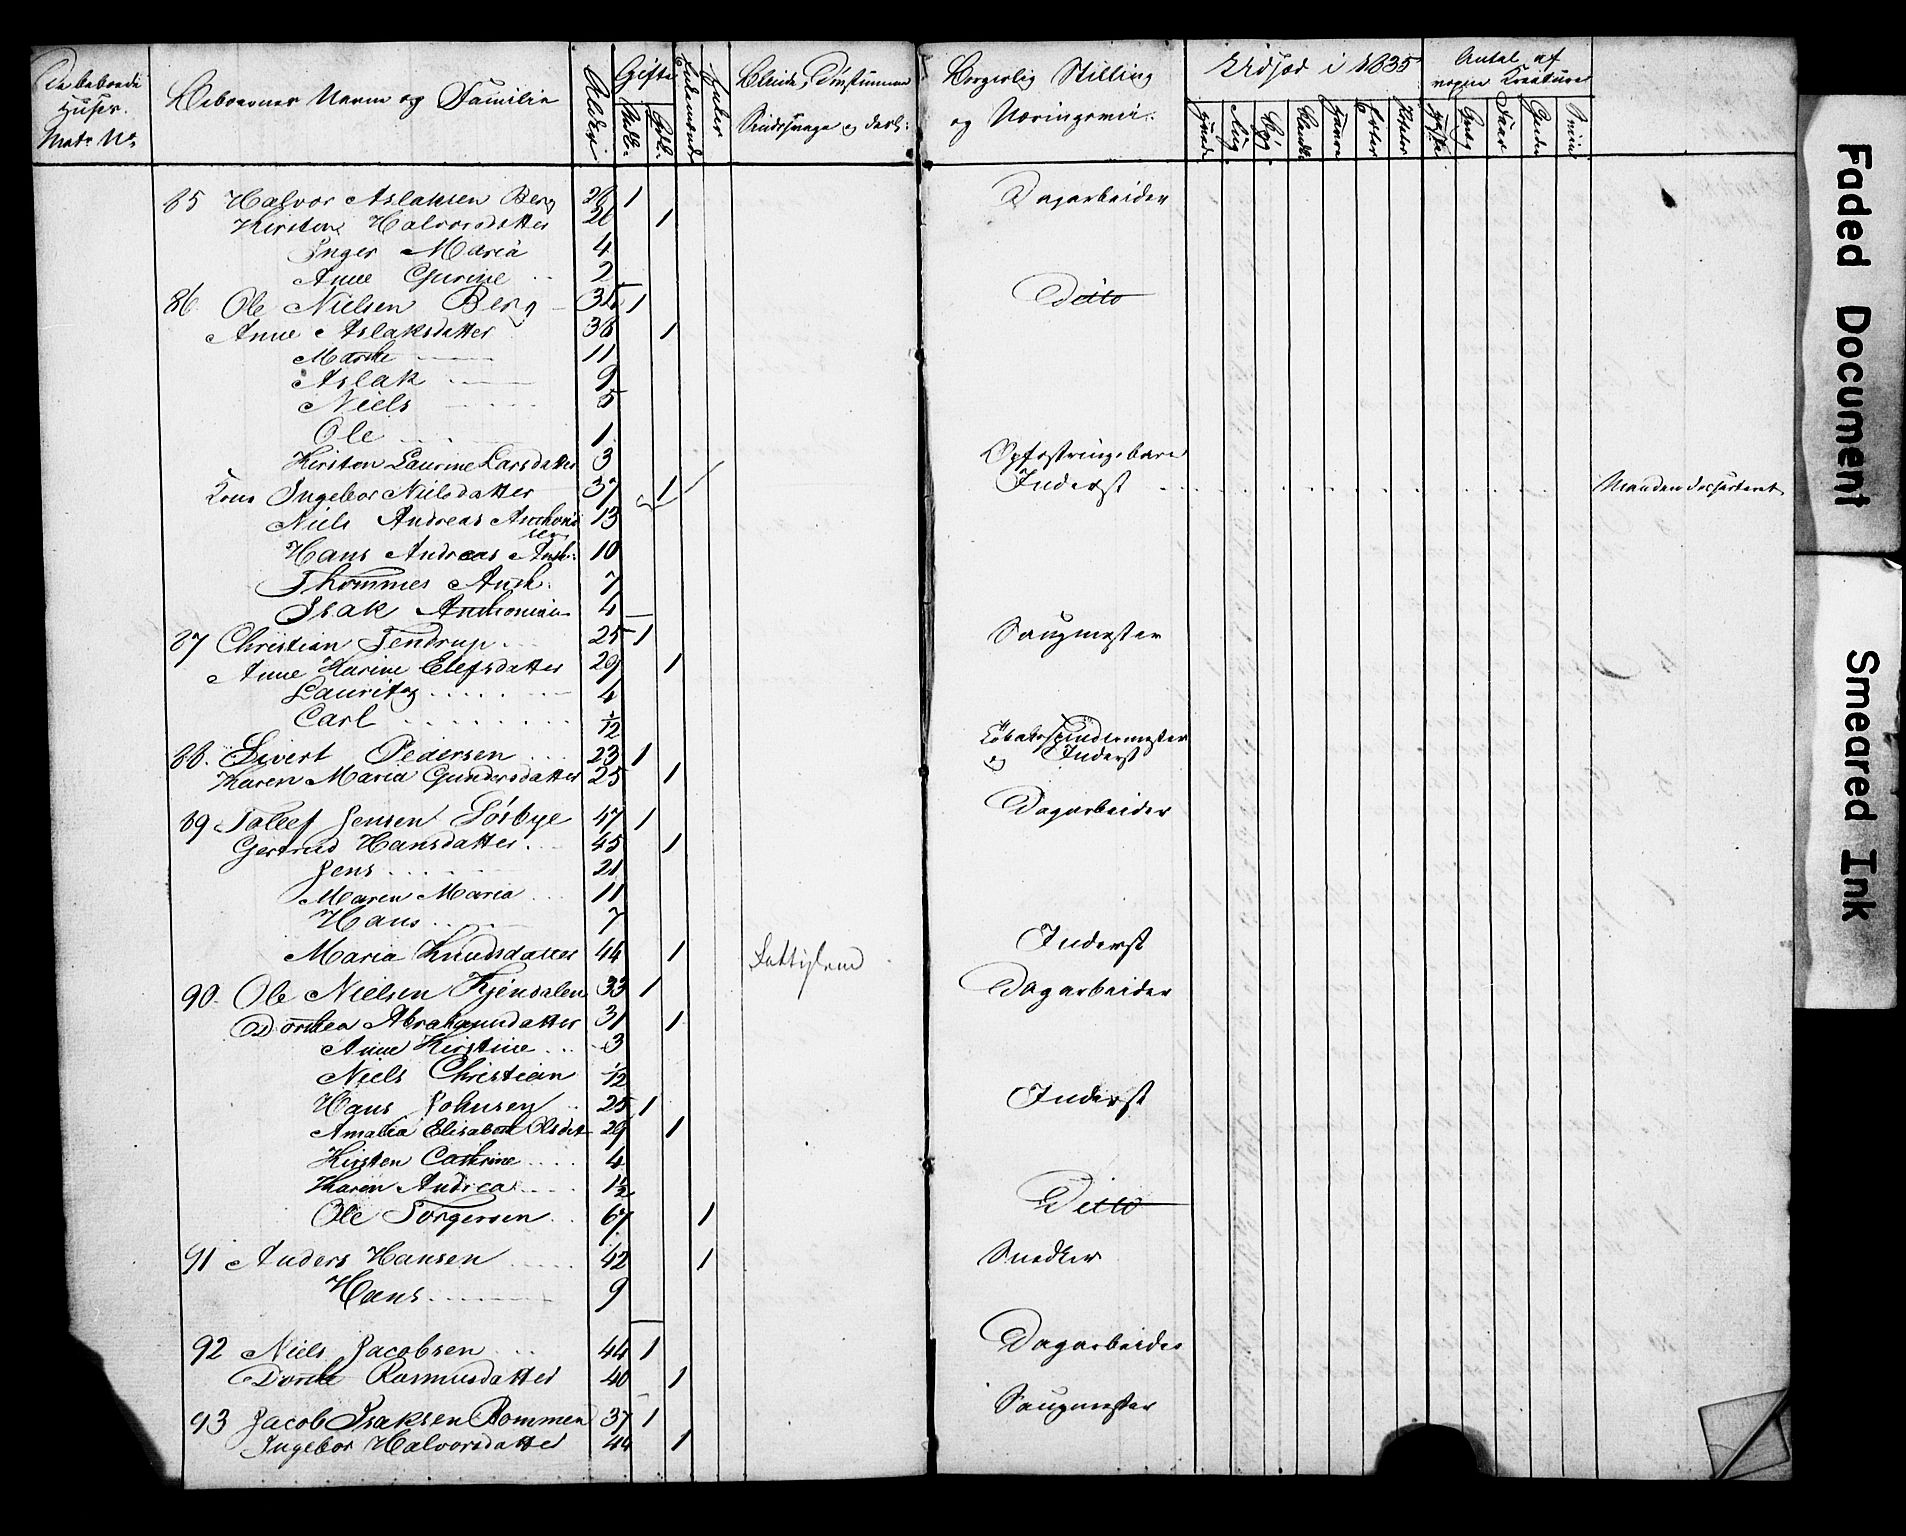 De beboede Huser. Matr: No
Beboernes Navne og Familie
Alder
Gifte
Mdk:
Qvk:
Enker
Blinde, Døvstumme
Sindssvage og døde:
Borgerlig Stilling
og Næringsvei.
Udsæd i 1835
Hvede Rug Byg Havre Erter
Antal af
Kreature
Heste Faar Sviin
85 Halvor Aslaksen Berg 1 Dagarbeider
Kirsten Halvorsdatter 1
Inger Maria 4
Anne Gurine 2
86. Ole Nielsen Berg 35 1 Ditto
Anne Aslaksdatter 38 1
Marthe 11
Aslak 9
Niels 5
Ole 1
Kirsten Laurine Larsdatter 3 Opfostringsbarn
Ingebor Nielsdatter 37 1 Inderst
Niels Andreas 13
sen
Hans Andreas Anth: 10
Thommes Anth. 7
Isak Anthonius 4
87 Christian Tendrup 25 1 Saugmester
Anne Karine Elefsdatter 29 1
Lauritz 4
Carl 1/12
88. Sivert Pedersen 23 1 Tobakspindermester
og Inderst
Karen Maria Gundersdatter 25 1
89 Tollef Jensen Løsbye 47 1 Dagarbeider
Gertrud Hansdatter 45 1
Jens 21
Maren Maria 11
Hans 7
Maria Knudsdatter 44 1 Fattiglem Inderst
90. Ole Nielsen Kjendalen 33 1 Dagarbeider
Dorthea Abrahamsdatter 31 1
Anne Kirstine 3
Niels Christian 1/12
Hans Johnsen 25 1 Inderst
Amalia Elisabeth Olsdat 29 1
Kirsten Cathrine 4
Karen Andrea 1½
Ole Torgersen 67 1 Ditto
91 Anders Hansen 42 1 Snedker
Hans 9
92 Niels Jacobsen 44 1 Dagarbeider
Dorthe Rasmusdatter 40 1
93 Jacob Isaksen Bommen 37 1 Saugmester
Ingebor Halvorsdatter 44 1
Faded Document
Smeared Ink